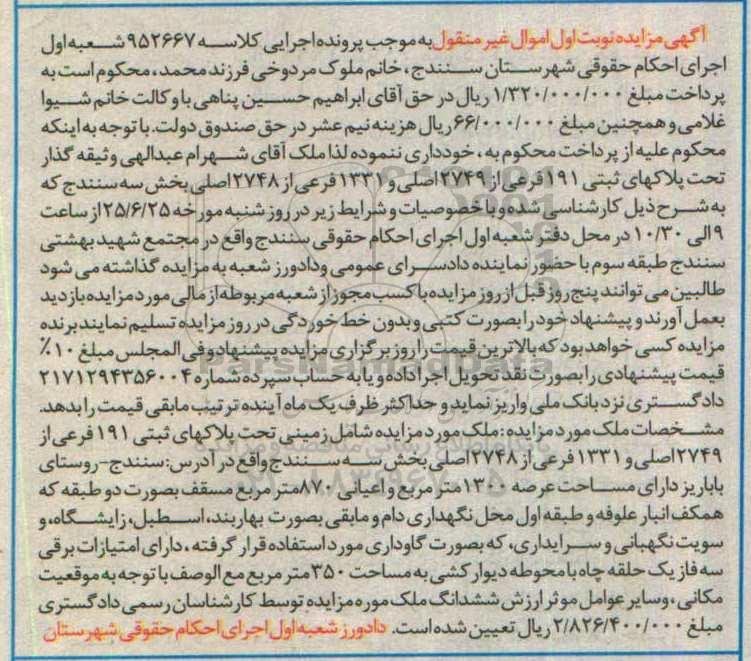 آگهی مزایده نوبت اول اموال غیر منقول به موجب پرونده اجرایی کلاسه ۹۵۲۶۶۷ شعبه اول
اجرای احکام حقوقی شهرستان سنندج، خانم ملوک مردوخی فرزند محمد، محکوم است به
پرداخت مبلغ ۱/۳۲۰/۰۰۰/۰۰۰ ریال در حق آقای ابراهیم حسین پناهی با وکالت خانم شیوا
غلامی و همچنین مبلغ ۶۶/۰۰۰/۰۰۰ ریال هزینه نیم عشر در حق صندوق دولت. با توجه به اینکه
محکوم علیه از پرداخت محکوم به، خودداری ننموده لذا ملک آقای شهرام عبدالهی وثیقه گذار
تحت پلاکهای ثبتی ۱۹۱ فرعی از ۲۷۴۹ اصلی و ۱۳۳۱ فرعی از ۲۷۴۸ اصلی بخش سه سنندج که
به شرح ذیل کارشناسی شده و با خصوصیات و شرایط زیر در روز شنبه مورخه ۲۵/۶/۲۵ از ساعت
۹ الی ۱۰/۳۰ در محل دفتر شعبه اول اجرای احکام حقوقی سنندج واقع در مجتمع شهید بهشتی
سنندج طبقه سوم با حضور نماینده دادسرای عمومی و دادورز شعبه به مزایده گذاشته می شود
طالبین می توانند پنج روز قبل از روز مزایده با کسب مجوز از شعبه مربوطه از مالی مورد مزایده بازدید
بعمل آورند و پیشنهاد خود را بصورت کتبی و بدون خط خوردگی در روز مزایده تسلیم نمایند برنده
مزایده کسی خواهد بود که بالاترین قیمت را روز برگزاری مزایده پیشنهاد و فی المجلس مبلغ ۱۰٪
قیمت پیشنهادی را بصورت نقد تحویل اجرا داده و یا به حساب سپرده شماره ۲۱۷۱۲۹۴۳۵۶۰۰۴
دادگستری نزد بانک ملی واریز نماید و حداکثر ظرف یک ماه آینده ترتیب مابقی قیمت را بدهد.
مشخصات ملک مورد مزایده: ملک مورد مزایده شامل زمینی تحت پلاکهای ثبتی ۱۹۱ فرعی از
۲۷۴۹ اصلی و ۱۳۳۱ فرعی از ۲۷۴۸ اصلی بخش سه سنندج واقع در آدرس: سنندج-روستای
باباریز دارای مساحت عرصه ۱۳۰۰ متر مربع و اعیانی ۸۷۰ متر مربع مسقف بصورت دو طبقه که
همکف انبار علوفه و طبقه اول محل نگهداری دام و مابقی بصورت بهاربند، اسطبل، زایشگاه، و
سویت نگهبانی و سرایداری، که بصورت گاوداری مورد استفاده قرار گرفته، دارای امتیازات برقی
سه فاز یک حلقه چاه با محوطه دیوار کشی به مساحت ۳۵۰ متر مربع مع الوصف با توجه به موقعیت
مکانی، وسایر عوامل موثر ارزش ششدانگ ملک موره مزایده توسط کارشناسان رسمی دادگستری
مبلغ ۲/۸۲۶/۴۰۰/۰۰۰ ریال تعیین شده است. دادورز شعبه اول اجرای احکام حقوقی شهرستان
ParsNamadData